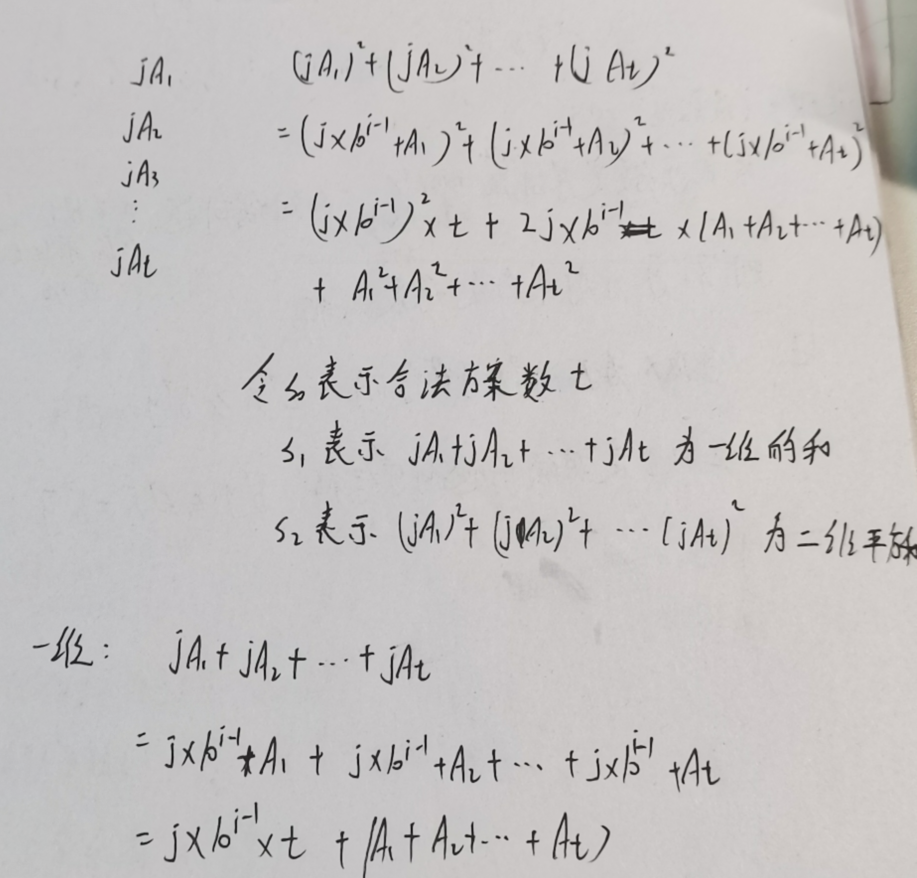 jA₁
jA₂
jA₃
⋮
jAt
(jA₁)²+(jA₂)²+ ⋯ +(jAt)²
=(j×10^{i-1}+A₁)²+(j×10^{i-1}+A₂)²+⋯+(j×10^{i-1}+At)²
=(j×10^{i-1})²×t + 2j×10^{i-1} ×(A₁+A₂+⋯+At)
+ A₁²+A₂²+⋯+At²
令s₀表示合法方案数t
s₁表示 jA₁+jA₂+ ⋯+jAt 为一维的和
s₂表示 (jA₁)²+(jA₂)²+ ⋯ (jAt)² 为二维平方和
一维: jA₁+jA₂+⋯+jAt
=j×10^{i-1}+A₁ + j×10^{i-1}+A₂+⋯ +j×10^{i-1}+At
=j×10^{i-1}×t +(A₁+A₂+⋯+At)